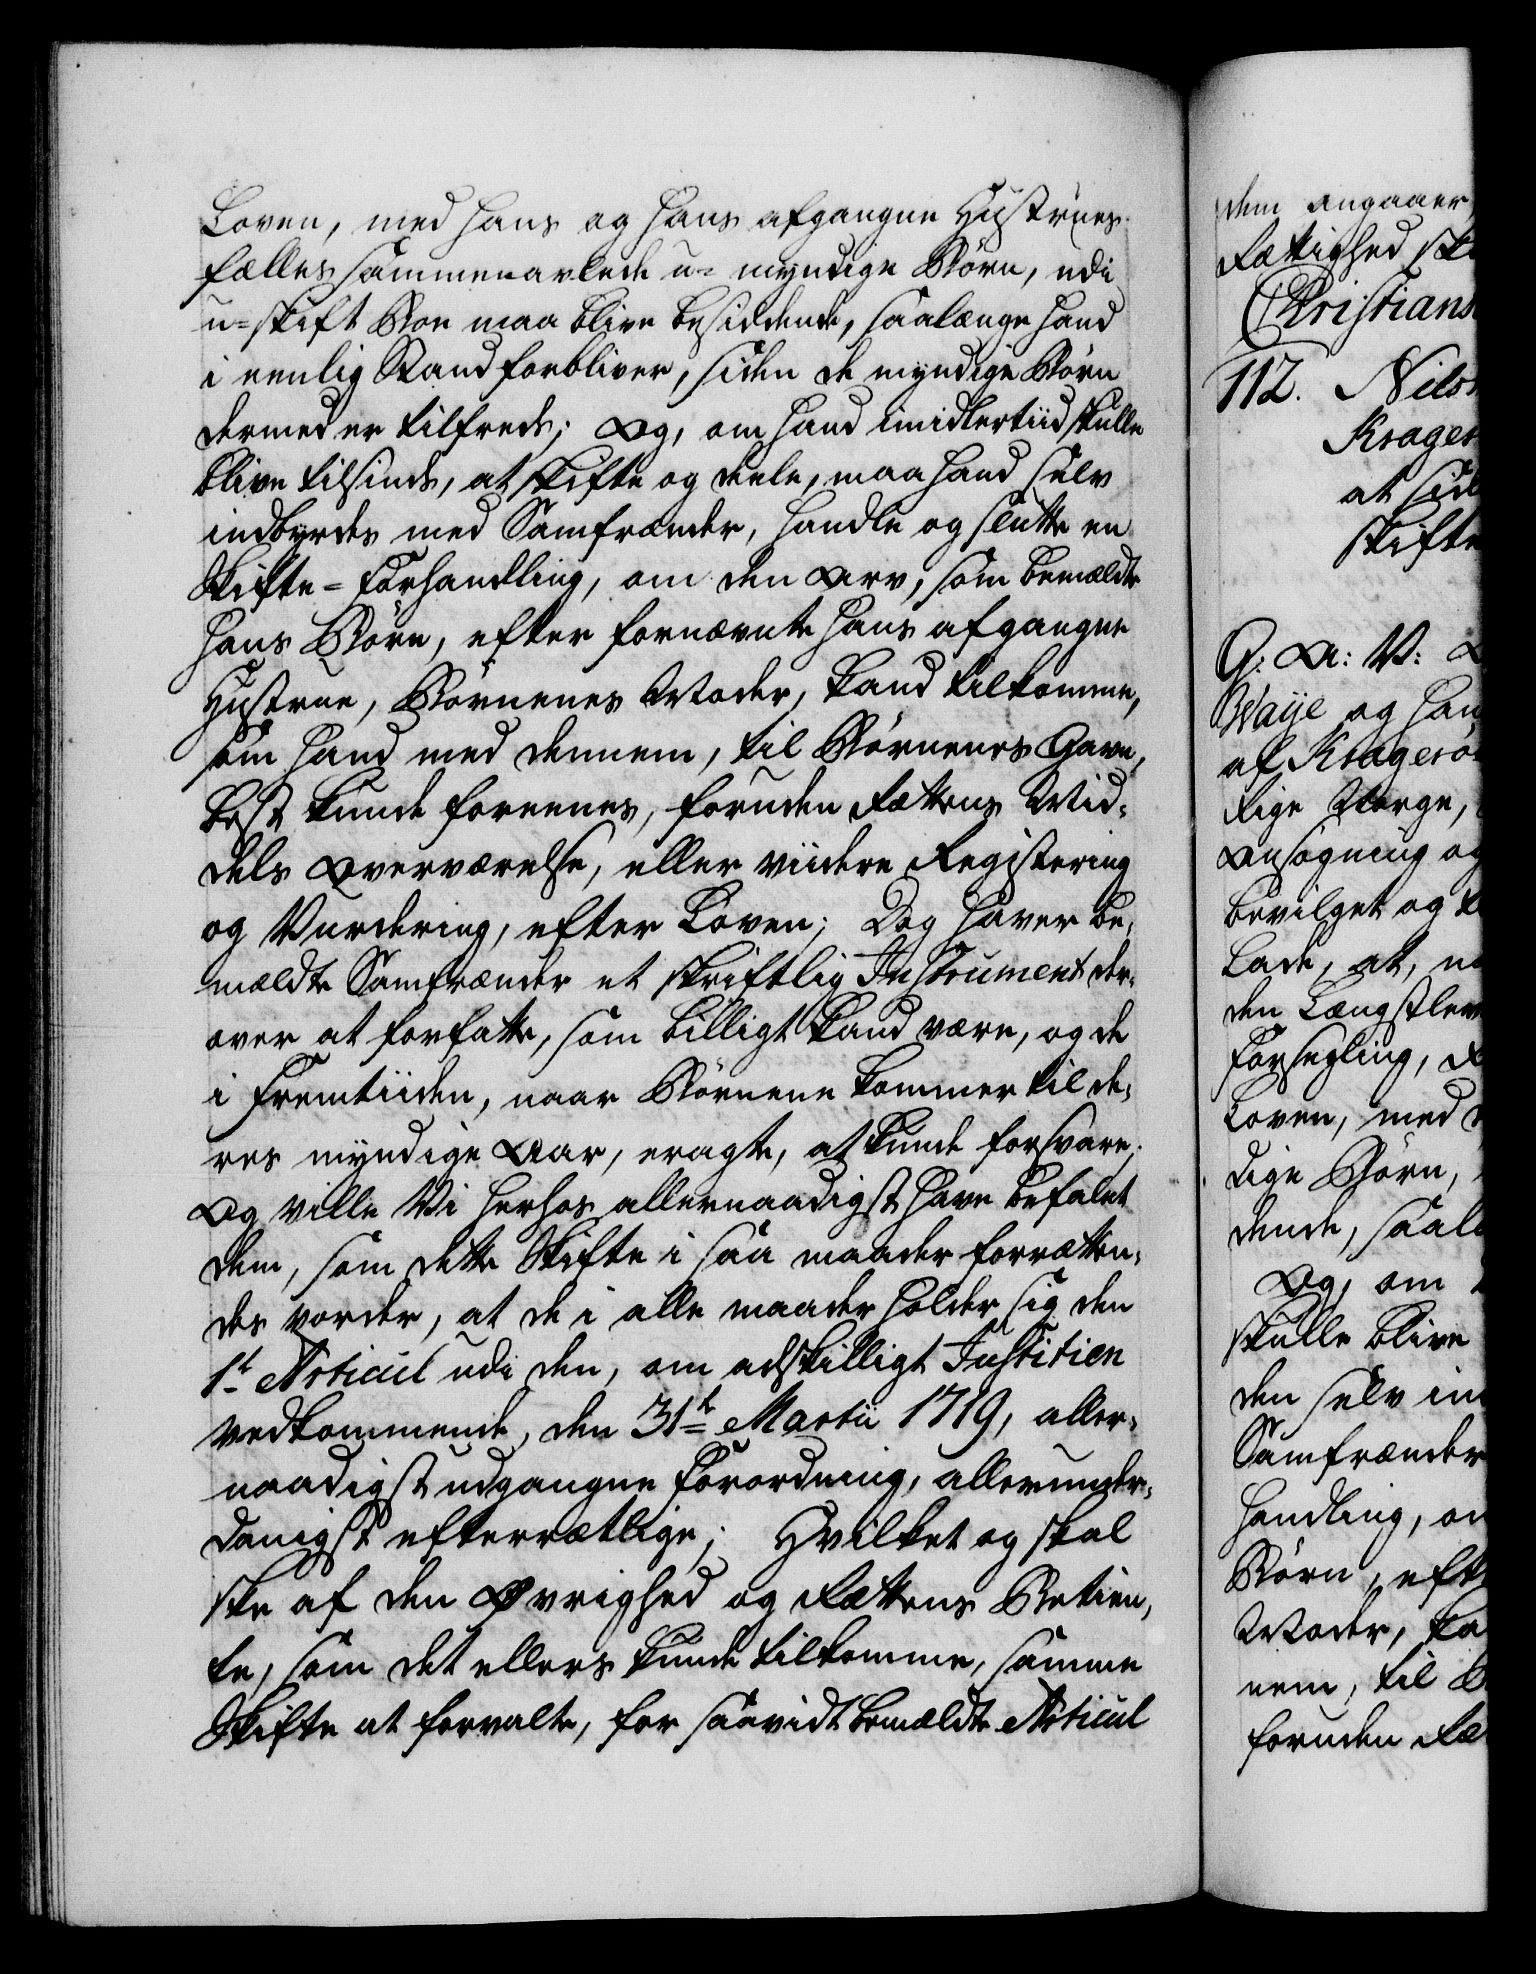 Loven, med hans og hans afgangne Hustrues
fælles sammenavlede u- myndige Børn, udi
u-skift Boe maa blive besiddende, saalænge hand
i eenlig Stand forbliver, siden de myndige Børn
dermed er tilfreds; Og, om hand imidlertiid skulle
blive tilsinds, at skifte og deele, maa hand selv
indbyrdes med Samfrænder, handle og slutte en
Skifte-Forhandling, om den Arv, som bemældte
hans Børn, efter fornævnte hans afgangne
Hustrue, Børnenes Moder, kand tilkomme,
som hand med dennem, til Børnenes Gavn,
best kunde foreenes, foruden Rættens Mid-
dels Overværelse, eller viidere Registering
og Vurdering, efter Loven; Dog haver be-
mældte Samfrænder et skriftlig Instrument der-
over at forfatte, som billigt kand være, og de
i Fremtiiden, naar Børnene kommer til de-
res myndige Aar, eragte, at kunde forsvare;
Og ville Vi herhos allernaadigst have befalet
dem, som dette Skifte i saa maader forrætten-
des vorder, at de i alle maader holder sig den
1t Articul udi den, om adskilligt Justitien
vedkommende, den 31t Martii 1719, aller-
naadigst udgangne Forordning, allerunder-
danigst efterrætlige; Hvilket og skal
skee af den Øvrighed og Rættens Betien-
te, som det ellers kunde tilkomme, samme
Skifte at forvalte, for saavidt bemældte Articul
dem angaaer,
Rættighed
Christians
112. Nils
Krager
at sid
skifte
G: A: V:
Waije og han
af Kragerø
Rige Norge,
Ansøgning og
bevilget og
Lade, at,
den Længstlev
Forsegling,
Loven, med
dige Børn,
dende, saal
Og, om
skulle blive
den selv in
Samfrænder
handling, om
Børn, eft
Moder, ka
nem, til
foruden Ræ